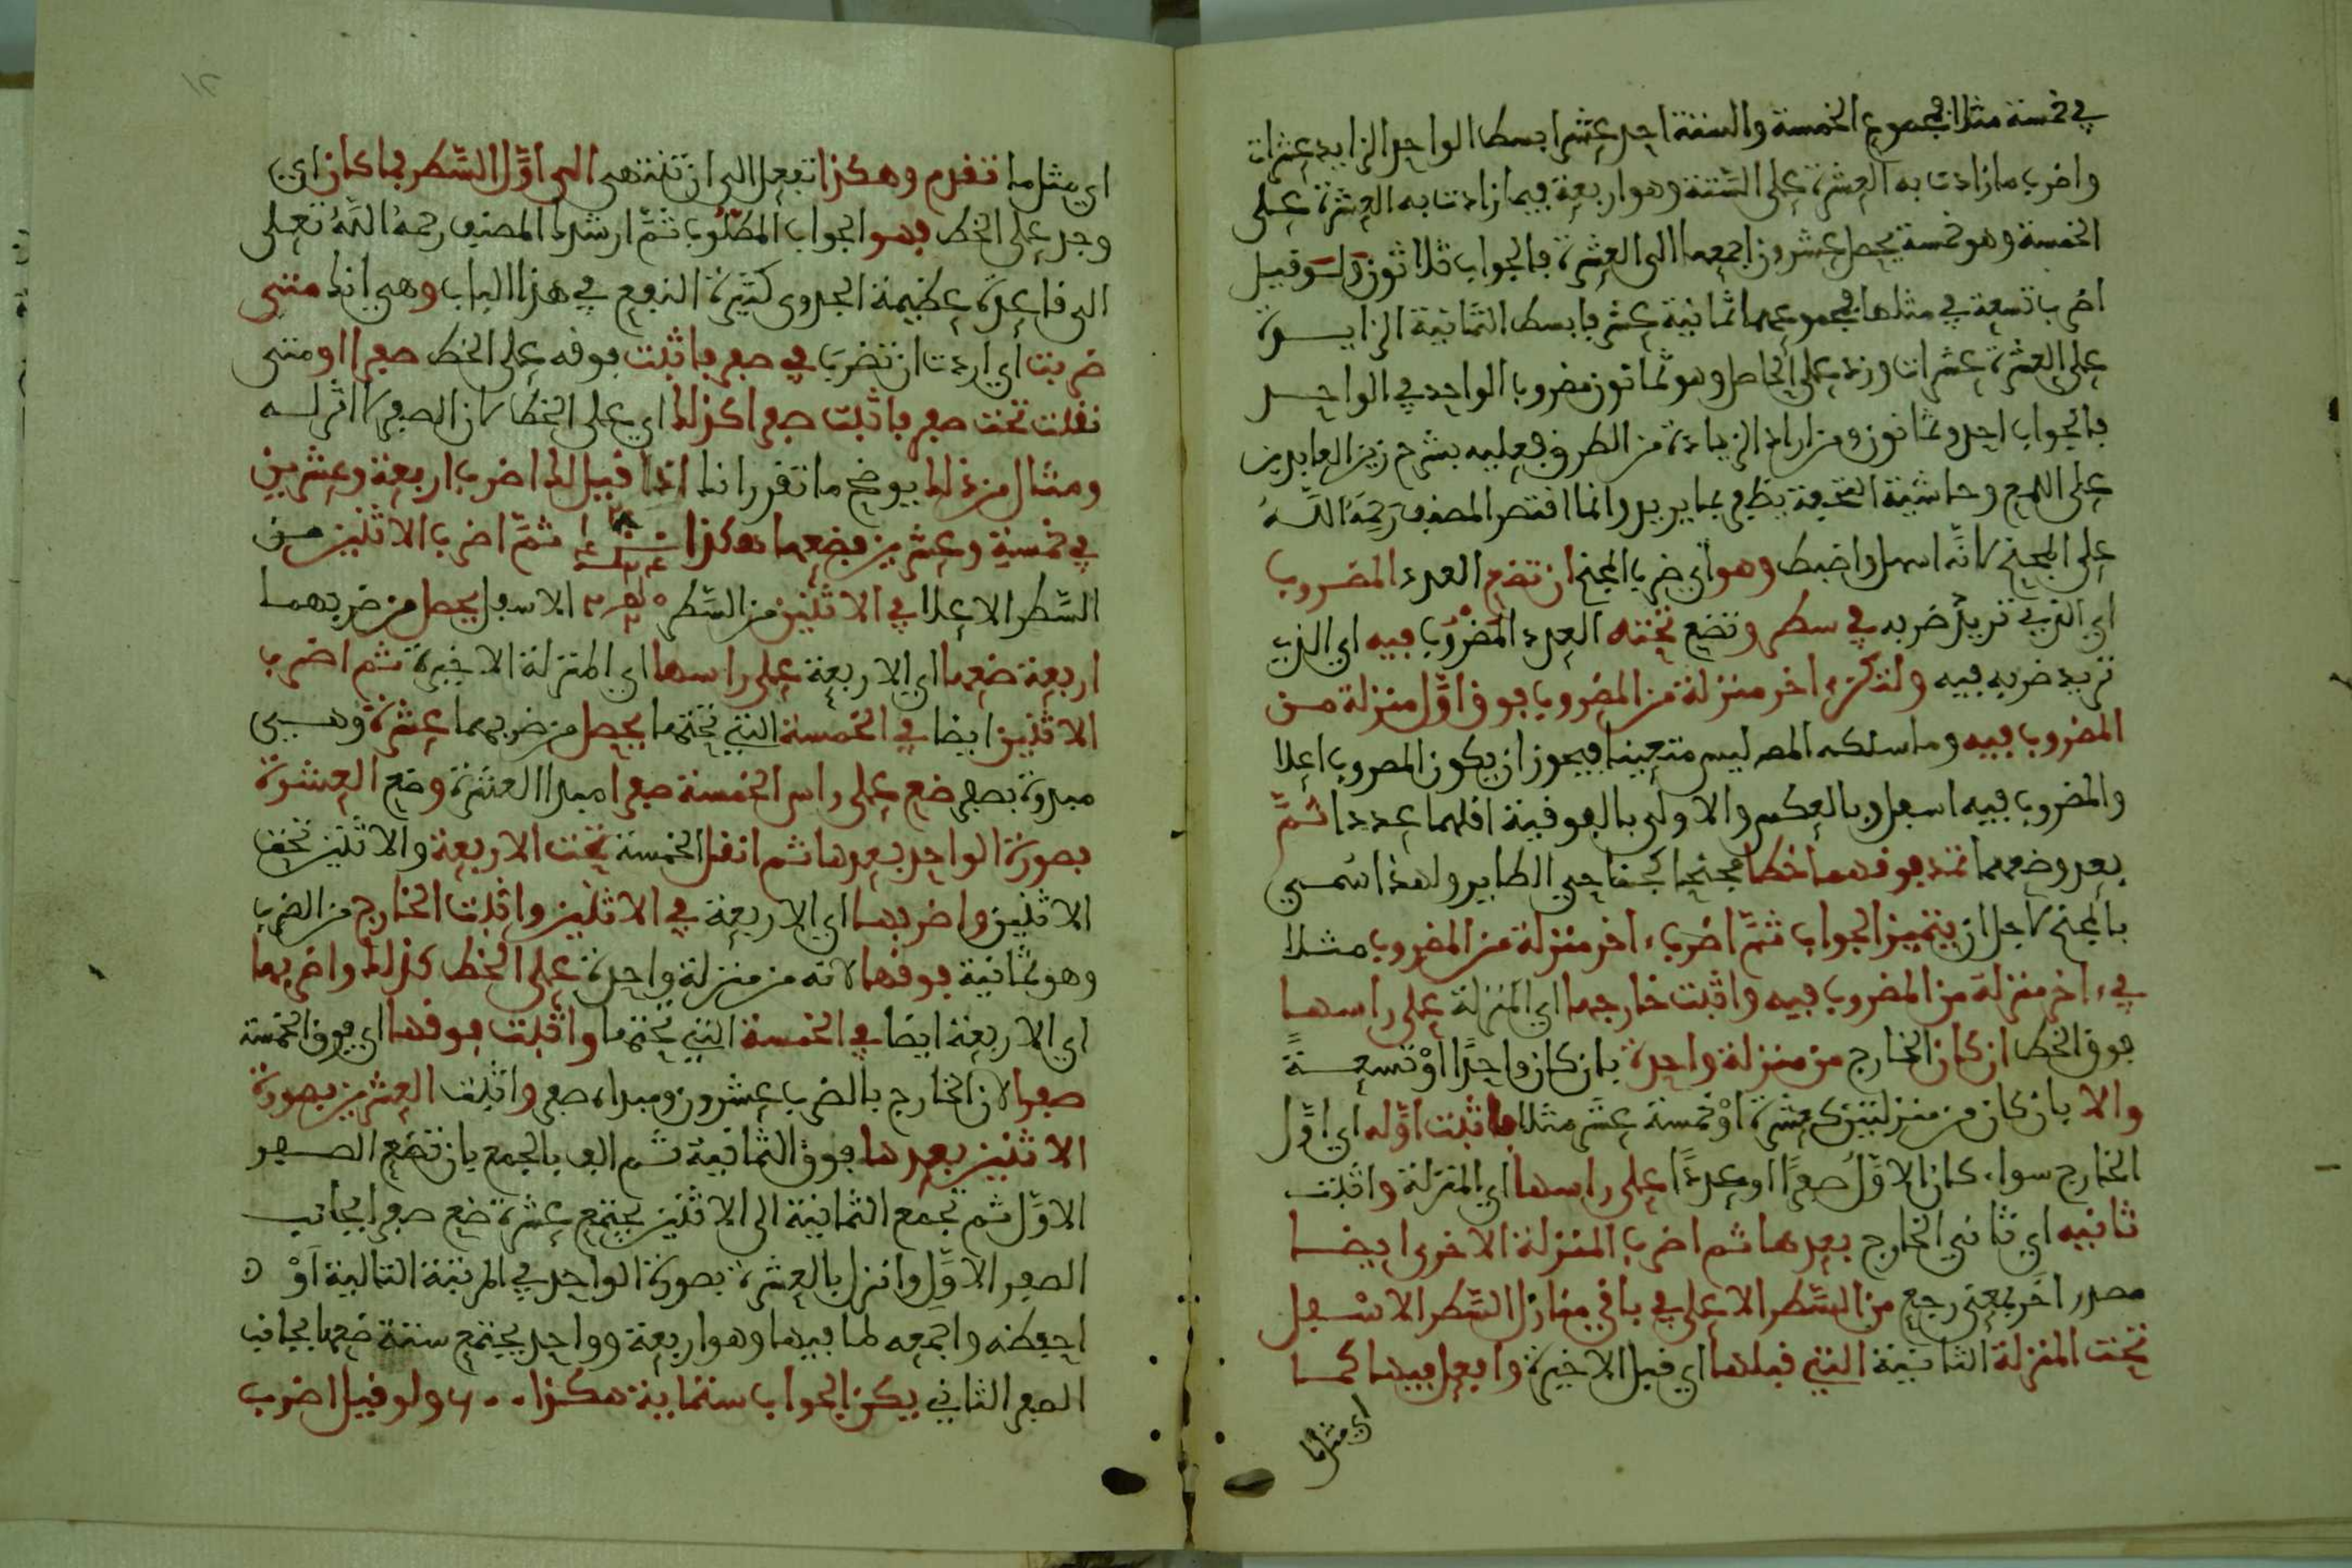 في خمسة مثلا فمجموع الخمسة والستة احد عشر ابسط الواحد الزايد عشرات
واضرب ما زادت به العشرة على الستة وهو اربعة فيما زادت به العشرة على
الخمسة وهو خمسة يحصل عشرون اجمعها الى العشرة فالجواب ثلاثون ولو قيل
اضرب تسعة في مثلها فمجموعهما ثمانية عشر فابسط الثمانية الزايدة
على العشرة عشرات وزد على الحاصل وهو ثمانون مضروب الواحد في الواحد
فالجواب احد وثمانون ومن اراد الزيادة من الطرق فعليه بشرح زين العابدين
على اللمع وحاشية التحفة يظفر بما يريد وانما اقتصر المصنف رحمه الله
على المجنح لانه اسهل واضبط وهو اي ضرب المجنح ان تضع العدد المضروب
اي الذي تريد ضربه في سطر وتضع تحته العدد المضروب فيه اي الذي
تريد ضربه فيه ولتكن ءاخر منزلة من المضروب فوق اول منزلة من
المضروب فيه وما سلكه المص ليس متعينا فيجوز ان يكون المضروب اعلا
والمضروب فيه اسفل وبالعكس والاولى بالفوقية اقلهما عددا ثم
بعد وضعهما تمد فوقهما خطا مجنحا كجناحي الطاير ولهذا سمي
بالمجنح لاجل ان يتميز الجواب ثم اضرب ءاخر منزلة من المضروب مثلا
في ءاخر منزلة من المضروب فيه واثبت خارجها اي المنزلة على راسها
فوق الخط ان كان الخارج من منزلة واحدة بان كان واحدا او تسعة
والا بان كان من منزلتين كعشرة او خمسة عشر مثلا فاثبت اوله اي اول
الخارج سواء كان الاول صفرا او عددا على راسها اي المنزلة واثبت
ثانيه اي ثاني الخارج بعدها ثم اضرب المنزلة الاخرى ايضا
مصدر اخر بمعنى رجع من السطر الاعلى في باقي منازل السطر الاسفل
تحت المنزلة الثانية التي قبلها اي قبل الاخيرة وافعل فيها كما
اي مثل ما
اي مثل ما تقدم وهكذا تفعل الى ان تنتهي الى اول السطر فما كان اي
وجد على الخط فهو الجواب المطلوب ثم ارشدك المصنف رحمه الله تعلى
الى قاعدة عظيمة الجدوى كثيرة النفع في هذا الباب وهي انك متى
ضربت اي اردت ان تضرب في صفر فاثبت فوقه على الخط صفرا او متى
نقلت تحت صفر فاثبت صفرا كذلك اي على الخط لان الصفر لا اثر له
ومثال من ذلك يوضح ما تقرر انك اذا قيل لك اضرب اربعة وعشرين
في خمسة وعشرين فضعهما هكذا ثم اضرب الاثنين من
السطر الاعلا في الاثنين من السطر الاسفل يحصل من ضربهما
اربعة ضعها اي الاربعة على راسها اي المنزلة الاخيرة ثم اضرب
الاثنين ايضا في الخمسة التي تحتها يحصل من ضربهما عشرة وهي
مبدوة بصفر ضع على راس الخمسة صفرا مبدا العشرة وضع العشرة
بصورة الواحد بعدها ثم انقل الخمسة تحت الاربعة والاثنين تحت
الاثنين واضربها اي الاربعة في الاثنين واثبت الخارج من الضرب
وهو ثمانية فوقها لانه من منزلة واحدة على الخط كذلك واضربها
اي الاربعة ايضا في الخمسة التي تحتها واثبت فوقها اي فوق الخمسة
صفرا لان الخارج بالضرب عشرون ومبداه صفر واثبت العشرين بصورة
الاثنين بعدها فوق الثمانية ثم الف بالجمع بان تضع الصفر
الاول ثم تجمع الثمانية الى الاثنين يجتمع عشرة ضع صفرا بجانب
الصفر الاول وانزل بالعشرة بصورة الواحد في المرتبة التالية او
احفظه واجمعه لما فيها وهو اربعة وواحد يجتمع ستة ضعها بجانب
الصفر الثاني يكن الجواب ستماية هكذا ٦٠٠ ولو قيل اضرب